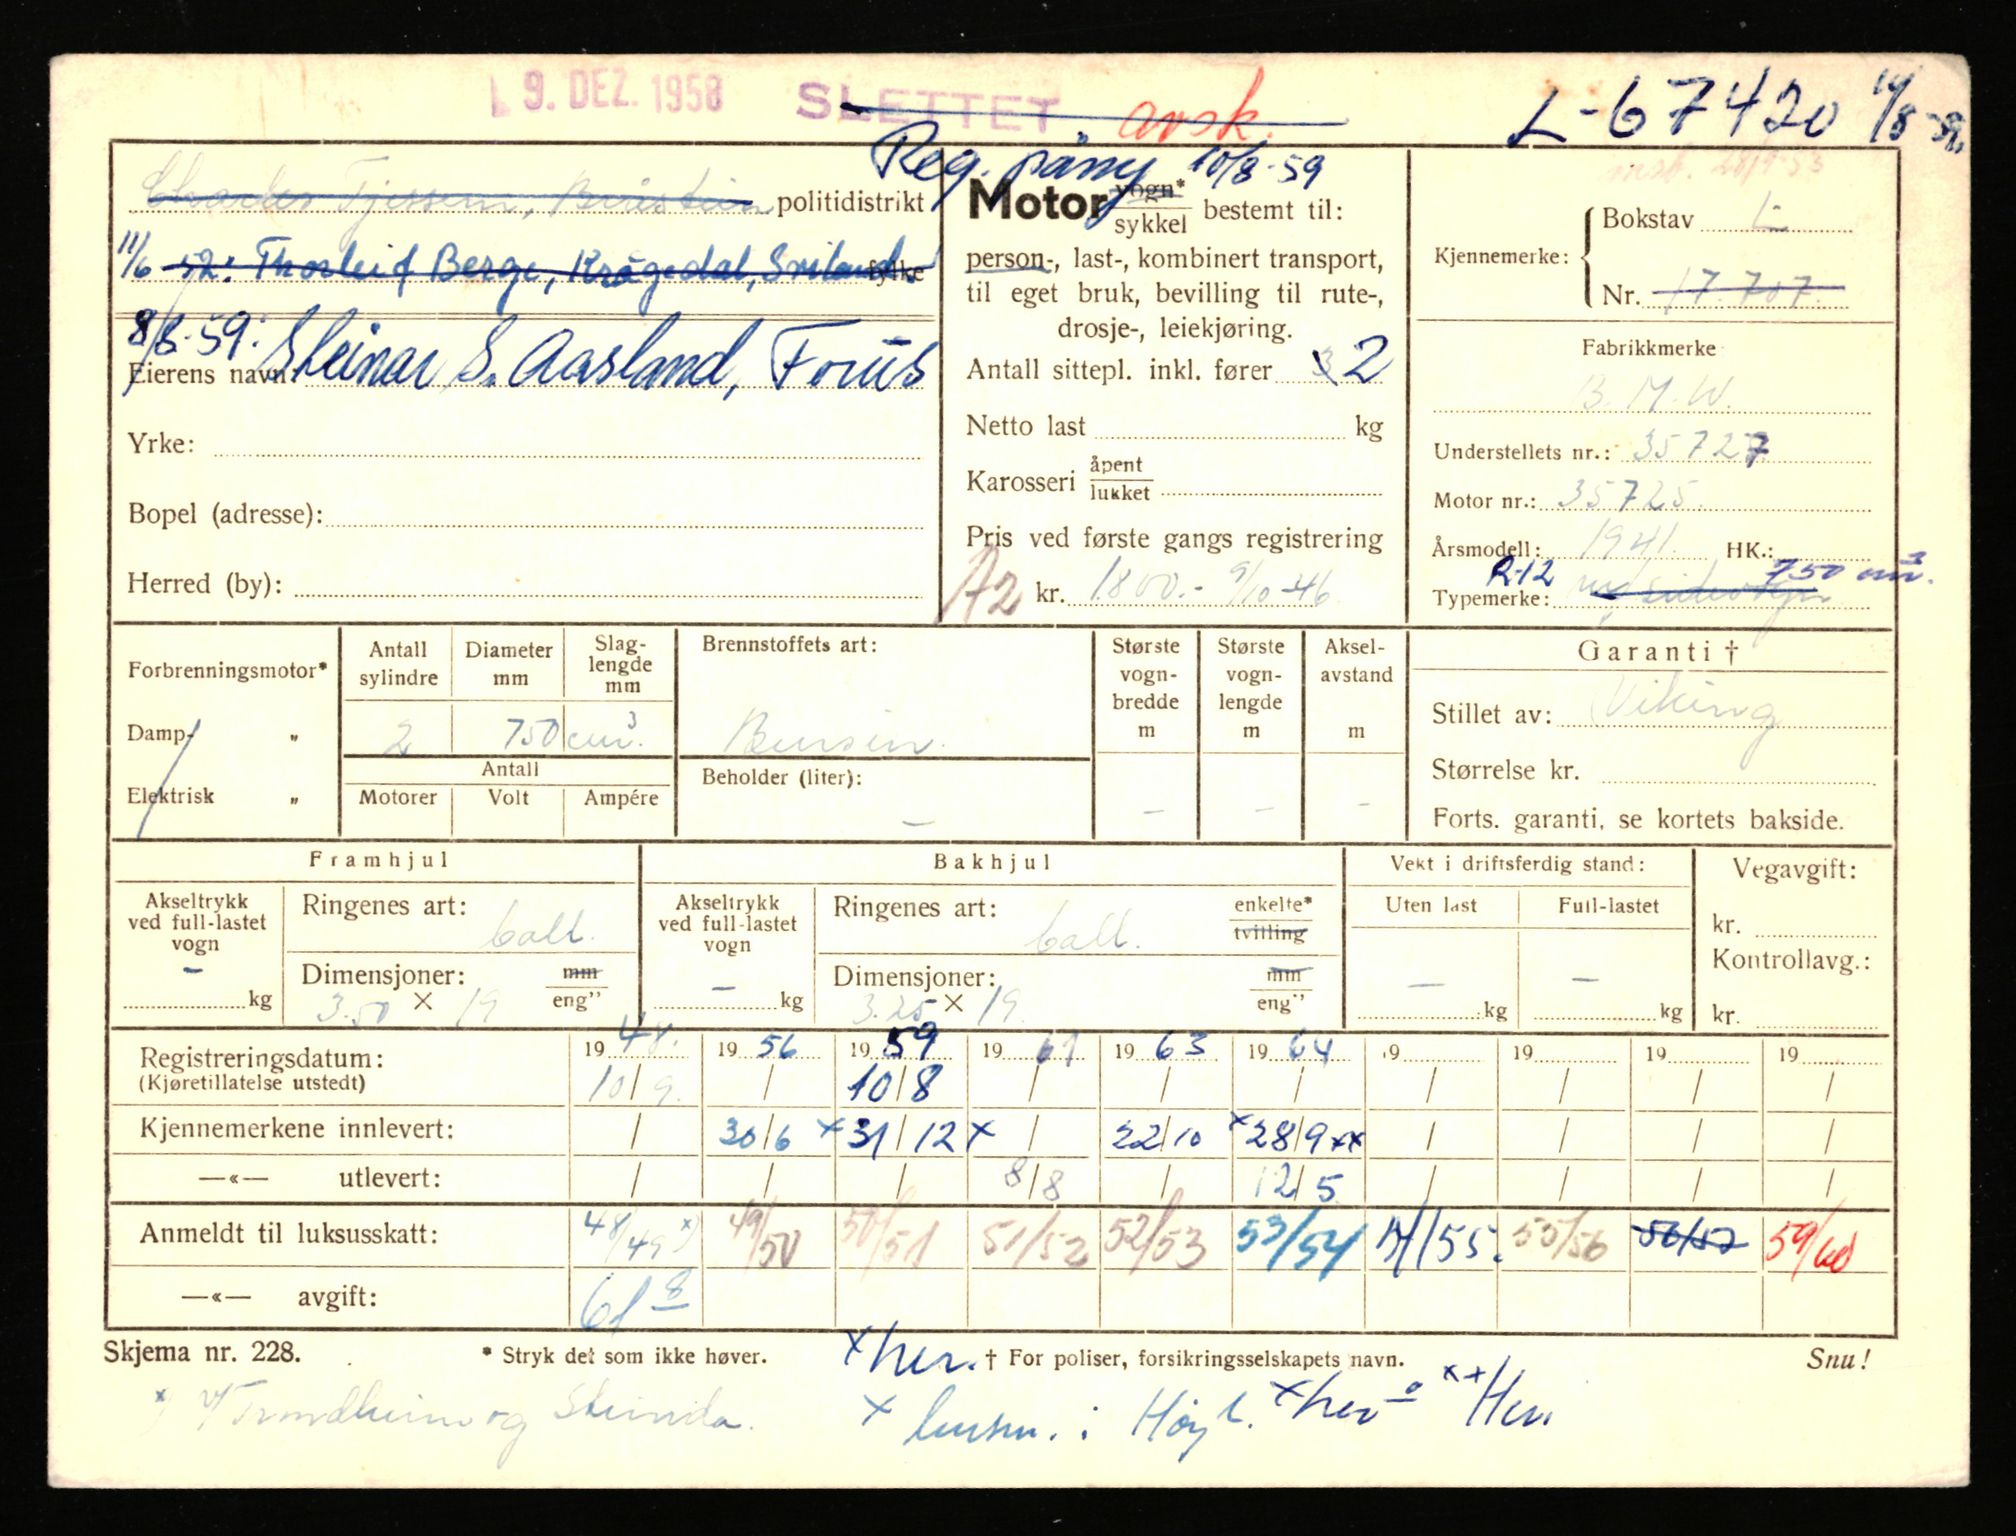 9. DEZ. 1958 SLETTET avsk. L-67420 14/8-59.
Reg. påny 10/8-59
Charles Tjessem, politidistrikt
11/6 52: Thorleif Berge, Krågedal, fylke
8/8-59: Steinar S. Aasland, Forus
Eierens navn:
Yrke:
Bopel (adresse):
Herred (by):
Motor vogn*
sykkel bestemt til:
person-, last-, kombinert transport,
til eget bruk, bevilling til rute-,
drosje-, leiekjøring.
Antall sittepl. inkl. fører 3 2
Netto last kg
Karosseri åpent
lukket
Pris ved første gangs registrering
A2 kr. 1800.- 9/10-46
Kjennemerke: Bokstav L
Nr. 17.707.
Fabrikkmerke
B. M. W.
Understellets nr.: 35727
Motor nr.: 35725.
Årsmodell: 1941. HK.:
R-12 750 cm3.
Typemerke:
Forbrenningsmotor*
Damp- "
Elektrisk "
Antall sylindre Diameter mm Slag-lengde mm
2 750 cm3.
Antall
Motorer Volt Ampére
Brennstoffets art:
Bensin.
Beholder (liter): —
Største vogn-bredde m –
Største vogn-lengde m –
Aksel-avstand m –
Garanti †
Stillet av: Viking
Størrelse kr.
Forts. garanti, se kortets bakside.
Framhjul
Akseltrykk ved full-lastet vogn – kg
Ringenes art: ball.
Dimensjoner: mm
3.50 × 19 eng”
Bakhjul
Akseltrykk ved full-lastet vogn – kg
Ringenes art: ball. enkelte*
tvilling
Dimensjoner: mm
3.25 × 19. eng”
Vekt i driftsferdig stand:
Uten last Full-lastet
– kg – kg
Vegavgift:
kr.
Kontrollavg.:
kr.
Registreringsdatum: 1948. 1956 1959 1961 1963 1964 19 19 19 19
(Kjøretillatelse utstedt) 10/9. / 10/8 / / / / / / /
Kjennemerkene innlevert: / 30/6 x 31/12 x / 22/10 x 28/9 xx / / / /
—«— utlevert: / / / 8/8 / 12/5 / / / /
Anmeldt til luksusskatt: 48/49 x) 49/50 50/51 51/52 52/53 53/54 54/55. 55/56 56/57 59/60
—«— avgift: 61 8
Skjema nr. 228. * Stryk det som ikke høver. x her. † For poliser, forsikringsselskapets navn. Snu!
x) v/Trondheim og Strinda. x lensm. i Høyl. x her xx Her.